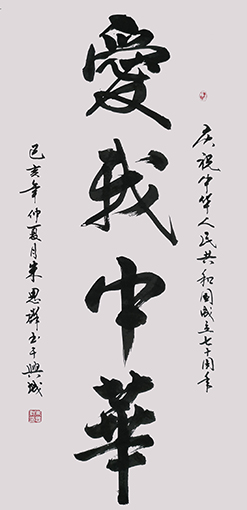 庆祝中华人民共和国成立七十周年
愛我中華
己亥年仲夏月朱思群书于興城